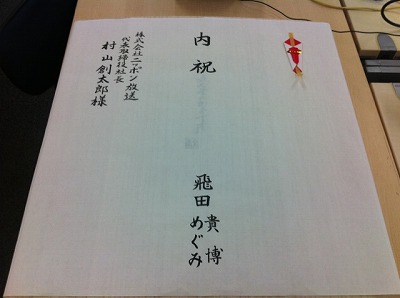 内祝
飛田 貴博
めぐみ
株式会社ニッポン放送
代表取締役社長
村山創太郎様